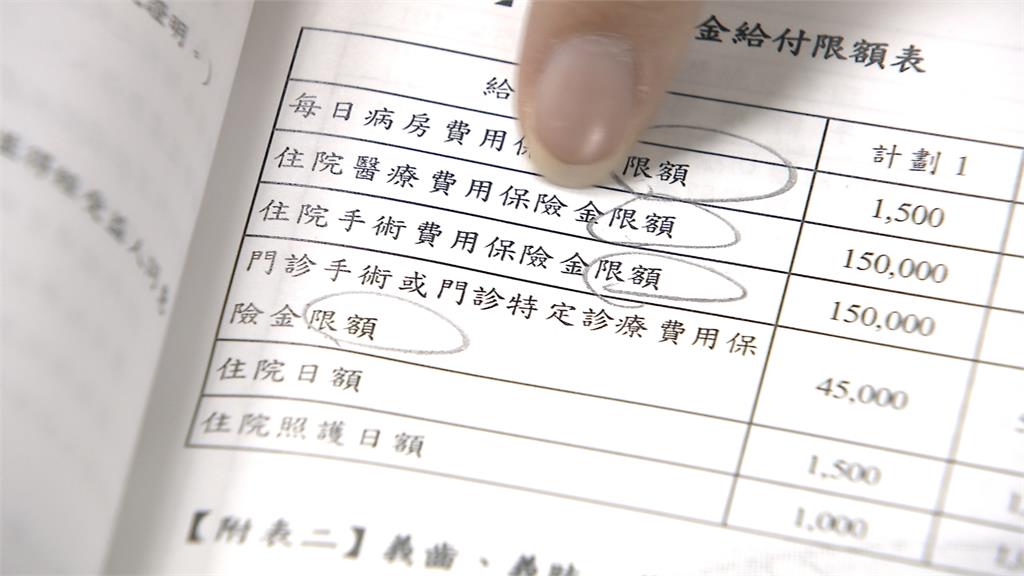 金給付限額表
給
計劃 1
每日病房費用 限額
1,500
住院醫療費用保險金限額
150,000
住院手術費用保險金限額
150,000
門診手術或門診特定診療費用保
險金限額
45,000
住院日額
1,500
住院照護日額
1,000
【附表二】義齒、義肢
證明。)